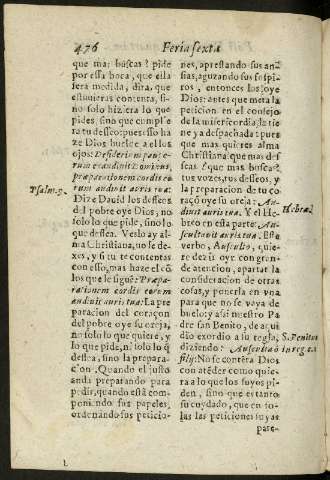 476 Feria sexta
que mas buscas? pide
por essa boca, que ella
sera medida, dira, que
estuuieras contenta, si
no solo hiziera lo que
pides, sino que cumplie
ra tu desseo: pues esso ha
ze Dios buelue a ellos
ojos: Desiderium pauperum
exaudiuit Dominus,
præparationem cordis eo
rum audiuit auris tua:
Psalm.9.
Dize Dauid los desseos
del pobre oye Dios, no
solo lo que pide, sino lo
que dessea. Veslo ay al
ma Christiana, no lo de
xes, y si tu te contentas
con esso, mas haze el cō
los que le sigue: Præpa-
rationem cordis eorum
audiuit auris tua: La pre
paracion del coraçon
del pobre oye su oreja,
no solo lo que quiere, y
lo que pide, ni solo lo q̃
dessea, sino la prepara-
cion. Quando el justo
anda preparando para
pedir, quando està com
poniendo sus papeles,
ordenando sus peticio-
nes, aprestando sus an
sias, aguzando sus suspi
ros, entonces los oye
Dios: antes que meta la
peticion en el consejo
de la misericordia la tie
ne ya despachada: pues
que mas quieres alma
Christiana que mas des
seas? que mas buscas?
tus vozes, tus desseos, y
la preparacion de tu co
raçõ oye su oreja: Au-
diuit auris tua. Y el He
breo en esta parte: Aus-
cultauit auris tua. Este
verbo, Ausculto, quie-
re dezir oyr con gran-
de atencion, apartar la
consideracion de otras
cosas, y ponerla en vna
para que no se vaya de
buelo: y assi nuestro Pa
dre san Benito, de aqui
dio exordio a su regla,
diziendo: Ausculta ò
fily: No se contēta Dios
con atēder como quie-
ra a lo que los suyos pi-
den, sino que es tanto
su cuydado, que en to-
das las peticiones suyas
Hebraea.
S. Benitus
in reg.
pare-